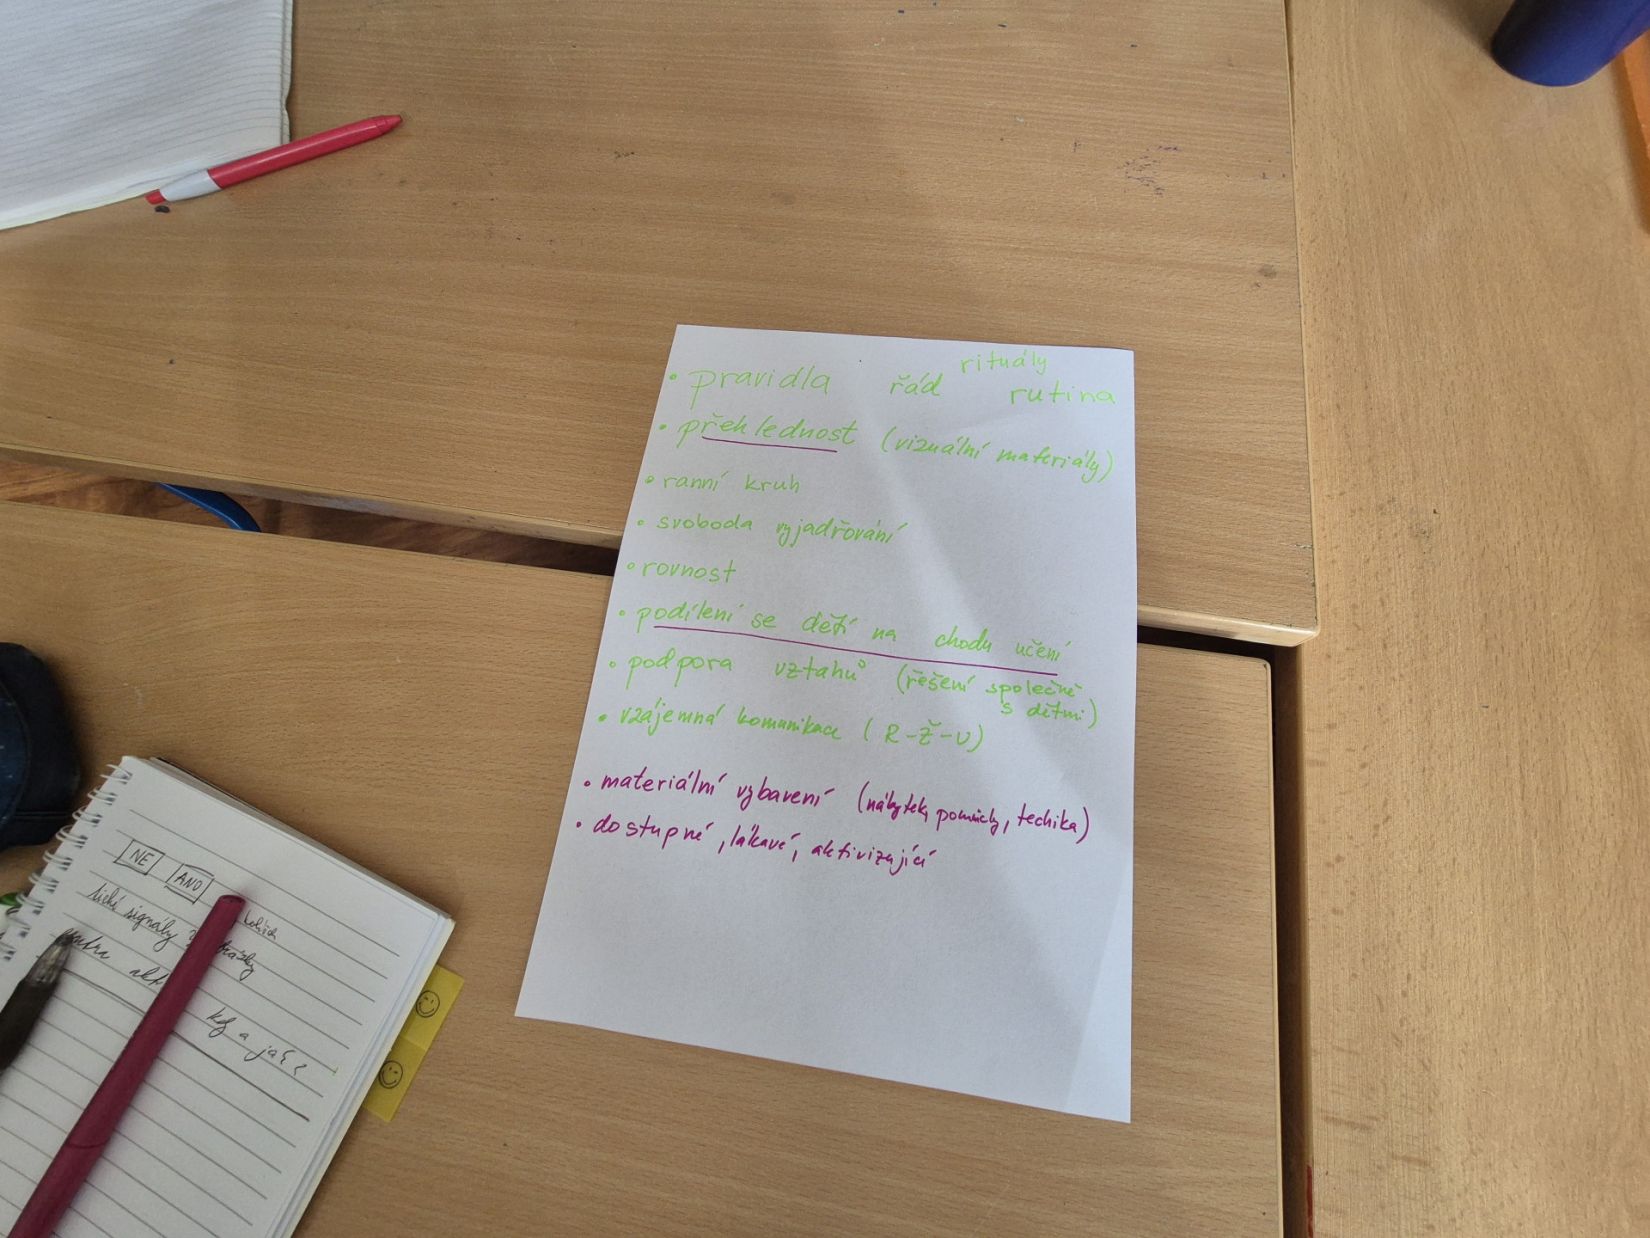 rituály
• pravidla řád rutina
• přehlednost (vizuální materiály)
• ranní kruh
• svoboda vyjadřování
• rovnost
• podílení se dětí na chodu učení
• podpora vztahů (řešení společně
s dětmi)
• vzájemná komunikace (R-Ž-U)
• materiální vybavení (nábytek, pomůcky, techika)
• dostupné, lákavé, aktivizující
NE ANO
tiché signály
kdy a jak?